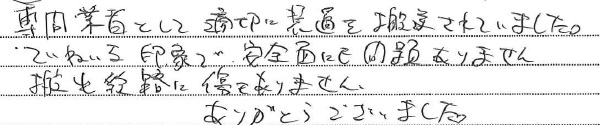 専門業者として適切に装置を搬送されていました。
・ていねいな印象で安全面にも問題ありません
搬出経路に傷もありません。
ありがとうございました。